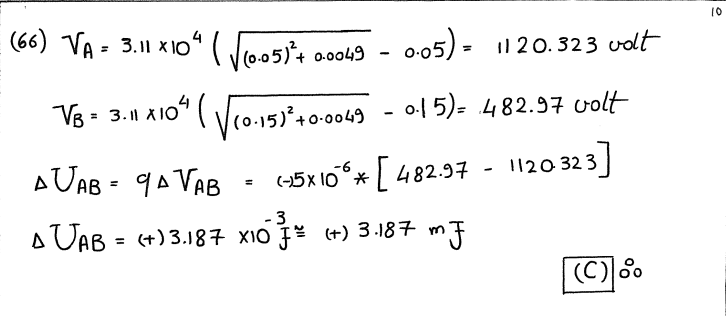 10
(66) V_A = 3.11 × 10^4 ( √((0.05)^2 + 0.0049) - 0.05) = 1120.323 volt
V_B = 3.11 × 10^4 ( √((0.15)^2 + 0.0049) - 0.15) = 482.97 volt
Δ U_AB = q Δ V_AB = (-)5 × 10^-6 * [ 482.97 - 1120.323 ]
Δ U_AB = (+) 3.187 × 10^-3 J ≅ (+) 3.187 mJ
(C)